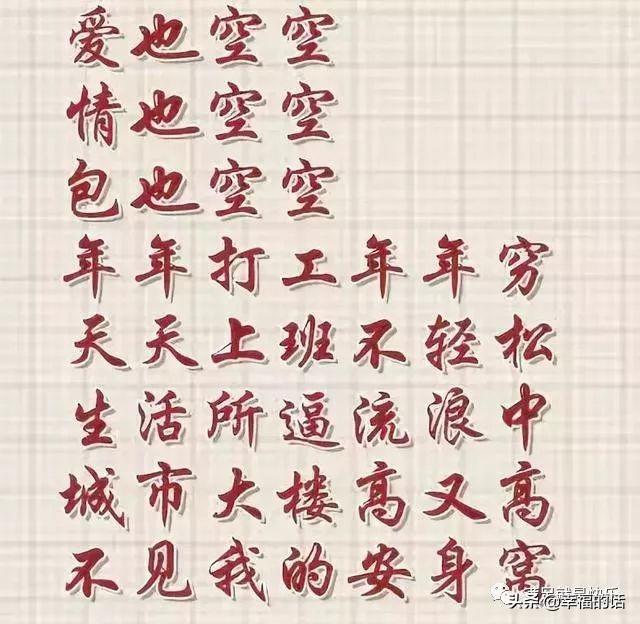 爱也空空
情也空空
包也空空
年年打工年年穷
天天上班不轻松
生活所逼流浪中
城市大楼高又高
不见我的安身窝
头条@幸福的话